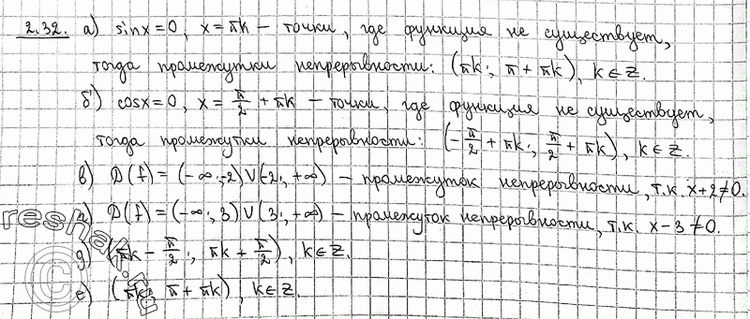 2.32. а) sinx=0, x=πk – точки, где функция не существует,
тогда промежутки непрерывности: (πk; π+πk), k∈Z.
б) cosx=0, x=π/2+πk – точки, где функция не существует,
тогда промежутки непрерывности: (-π/2+πk; π/2+πk), k∈Z.
в) D(f)=(-∞;-2)∪(-2;+∞) – промежуток непрерывности, т.к. x+2≠0.
г) D(f)=(-∞;3)∪(3;+∞) – промежуток непрерывности, т.к. x-3≠0.
д) (πk-π/2; πk+π/2), k∈Z.
е) (πk; π+πk), k∈Z.
reshak.ru
©